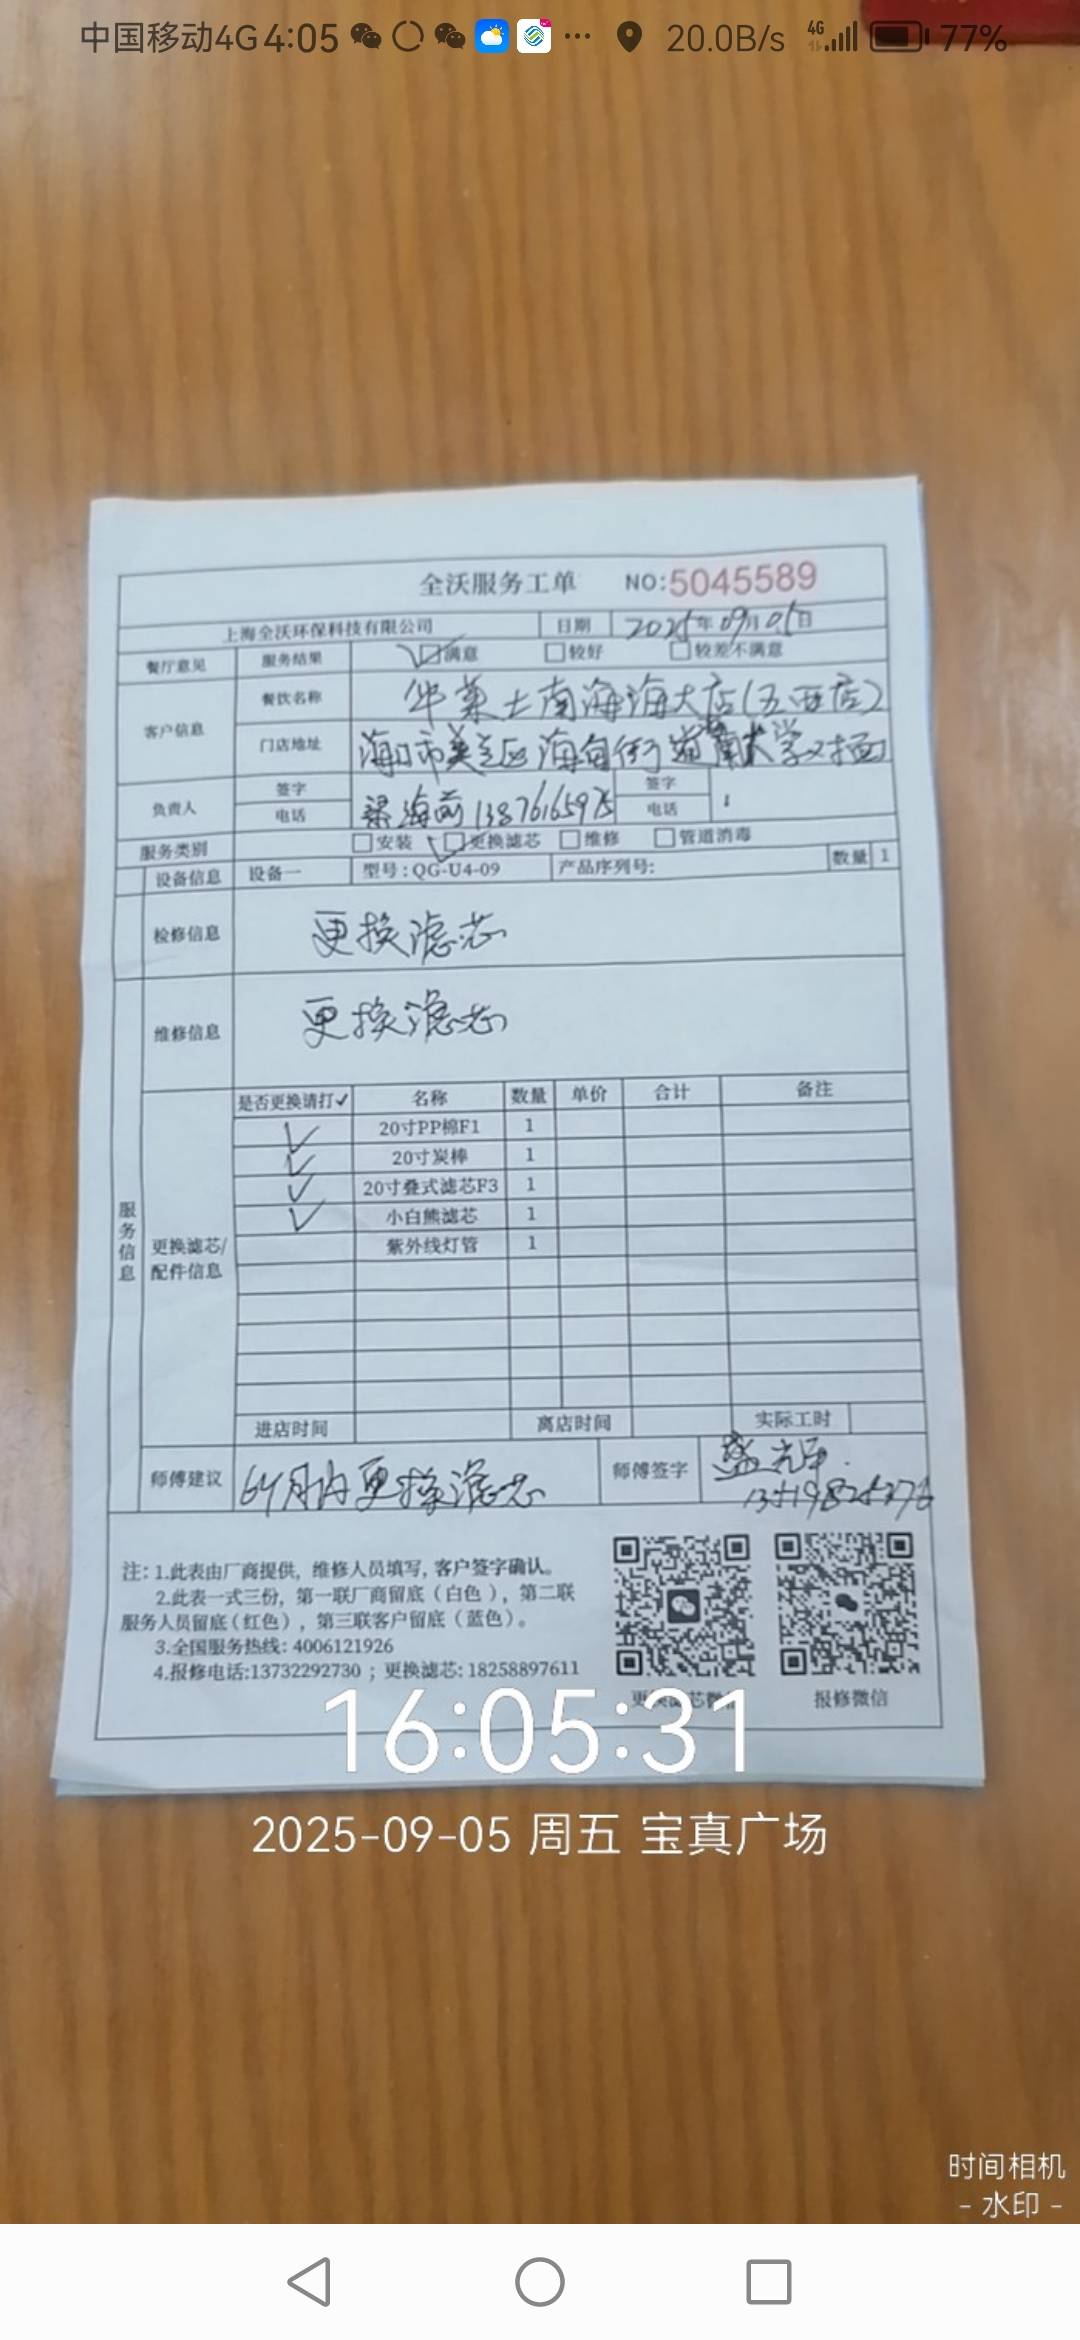 中国移动4G 4:05 20.0B/s 4G 77%
全沃服务工单 NO:5045589
上海全沃环保科技有限公司 日期 2025年09月05日
餐厅意见 服务结果 满意 较好 较差不满意
客户信息 餐饮名称 华莱士南海海大店(五西店)
门店地址 海口市美兰区海甸街道海南大学对面
负责人 签字 签字
电话 梁海前 13876165975 电话
服务类别 安装 更换滤芯 维修 管道消毒
设备信息 设备一 型号:QG-U4-09 产品序列号: 数量 1
检修信息 更换滤芯
维修信息 更换滤芯
服务信息
更换滤芯/配件信息
是否更换请打✓ 名称 数量 单价 合计 备注
✓ 20寸PP棉F1 1
✓ 20寸炭棒 1
✓ 20寸叠式滤芯F3 1
✓ 小白熊滤芯 1
紫外线灯管 1
进店时间 离店时间 实际工时
师傅建议 6个月内更换滤芯 师傅签字
注:1.此表由厂商提供,维修人员填写,客户签字确认。
2.此表一式三份,第一联厂商留底(白色),第二联
服务人员留底(红色),第三联客户留底(蓝色)。
3.全国服务热线:4006121926
4.报修电话:13732292730 ;更换滤芯:18258897611
更换滤芯微信 报修微信
16:05:31
2025-09-05 周五 宝真广场
时间相机
- 水印 -